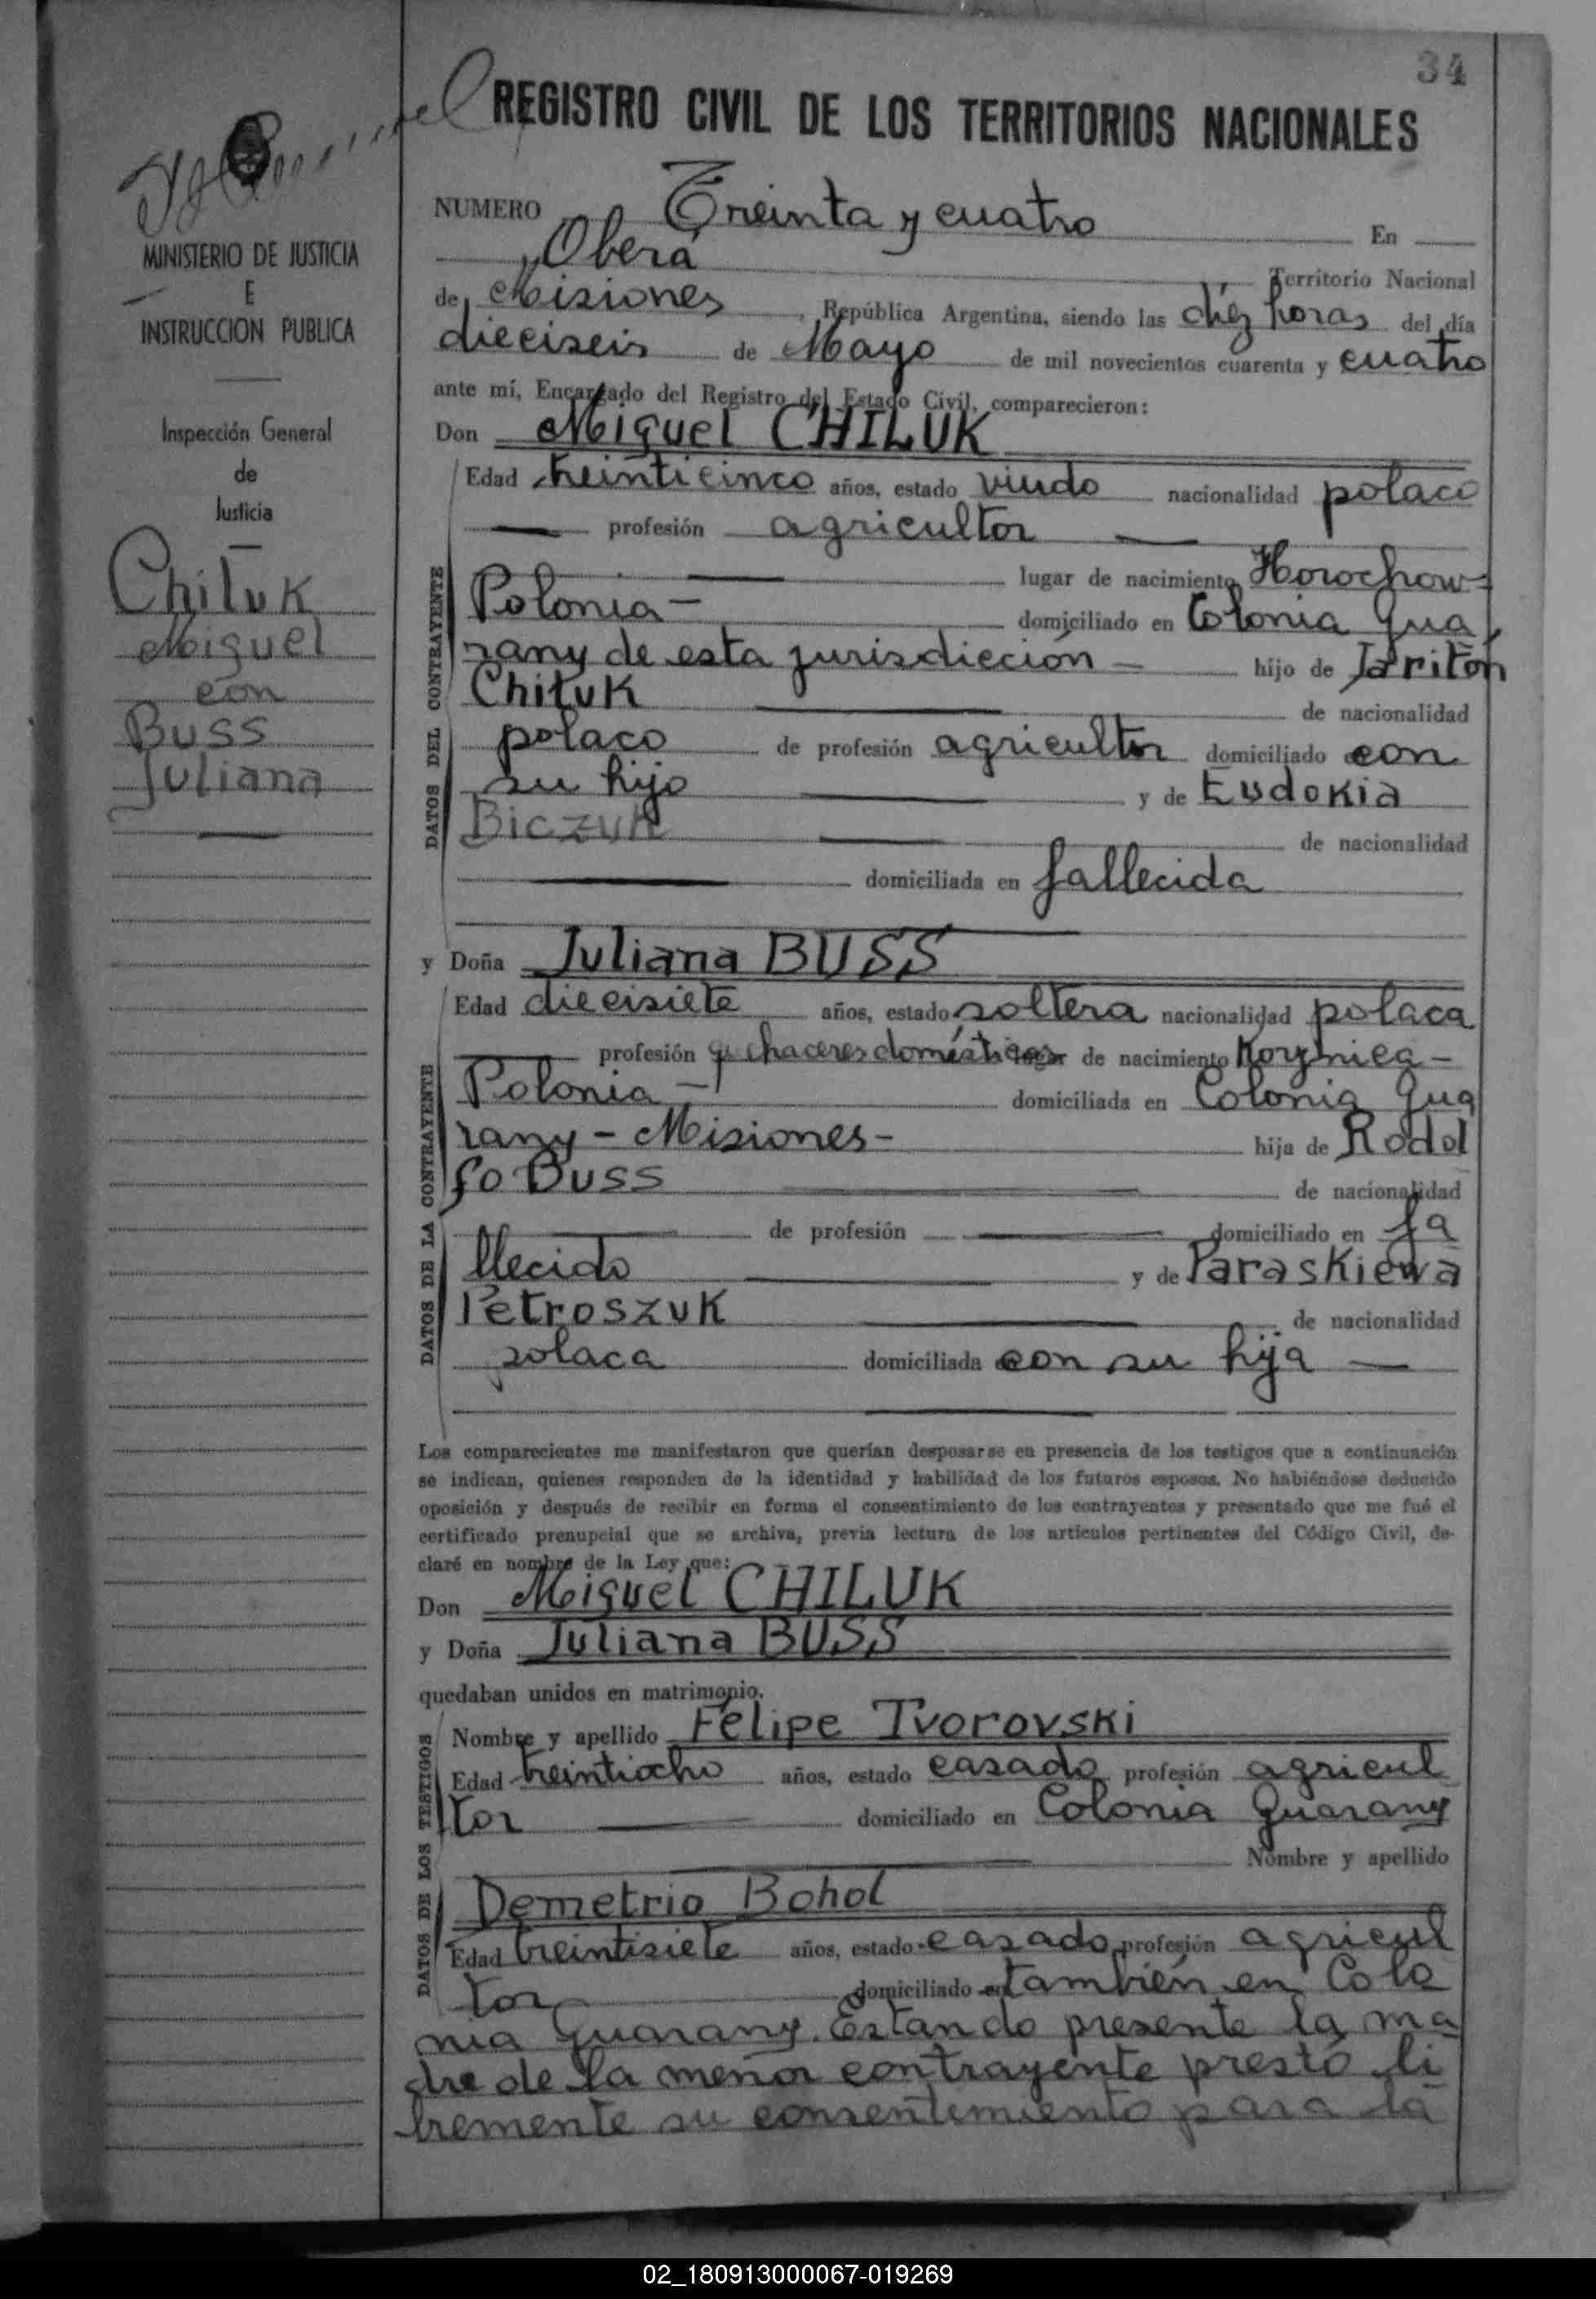 34
REGISTRO CIVIL DE LOS TERRITORIOS NACIONALES
MINISTERIO DE JUSTICIA
E
INSTRUCCION PUBLICA
Inspección General
de
Justicia
Chiluk
Miguel
con
Buss
Juliana
NUMERO Treinta y cuatro En
Oberá Territorio Nacional
de Misiones, República Argentina, siendo las diez horas del día
dieciseis de Mayo de mil novecientos cuarenta y cuatro
ante mí, Encargado del Registro del Estado Civil, comparecieron:
Don Miguel CHILUK
Edad treinticinco años, estado viudo nacionalidad polaco
profesión agricultor
lugar de nacimiento Horochow-
Polonia- domiciliado en Colonia Gua
rany de esta jurisdicción - hijo de
Chiluk de nacionalidad
polaco de profesión agricultor domiciliado con
su hijo y de Eudokia
Biczuk de nacionalidad
domiciliada en fallecida
y Doña Juliana BUSS
Edad diecisiete años, estado soltera nacionalidad polaca
profesión quehaceres domésticos lugar de nacimiento
Polonia - domiciliada en Colonia Gua
rany - Misiones - hija de Rodol
fo Buss de nacionalidad
de profesión domiciliado en fa
llecido y de Paraskiewa
Petroszuk de nacionalidad
polaca domiciliada con su hija
DATOS DEL CONTRAYENTE
DATOS DE LA CONTRAYENTE
Los comparecientes me manifestaron que querían desposarse en presencia de los testigos que a continuación
se indican, quienes responden de la identidad y habilidad de los futuros esposos. No habiéndose deducido
oposición y después de recibir en forma el consentimiento de los contrayentes y presentado que me fué el
certificado prenupcial que se archiva, previa lectura de los artículos pertinentes del Código Civil, de-
claré en nombre de la Ley que:
Don Miguel CHILUK
y Doña Juliana BUSS
quedaban unidos en matrimonio.
Nombre y apellido Felipe Tvorovski
Edad treintiocho años, estado casado profesión agricul
tor domiciliado en Colonia Guarany
Nombre y apellido
Demetrio Bohol
Edad treintisiete años, estado casado profesión agricul
tor domiciliado en también en Colo
nia Guarany. Estando presente la ma
dre de la menor contrayente prestó li
bremente su consentimiento para la
DATOS DE LOS TESTIGOS
02_180913000067-019269